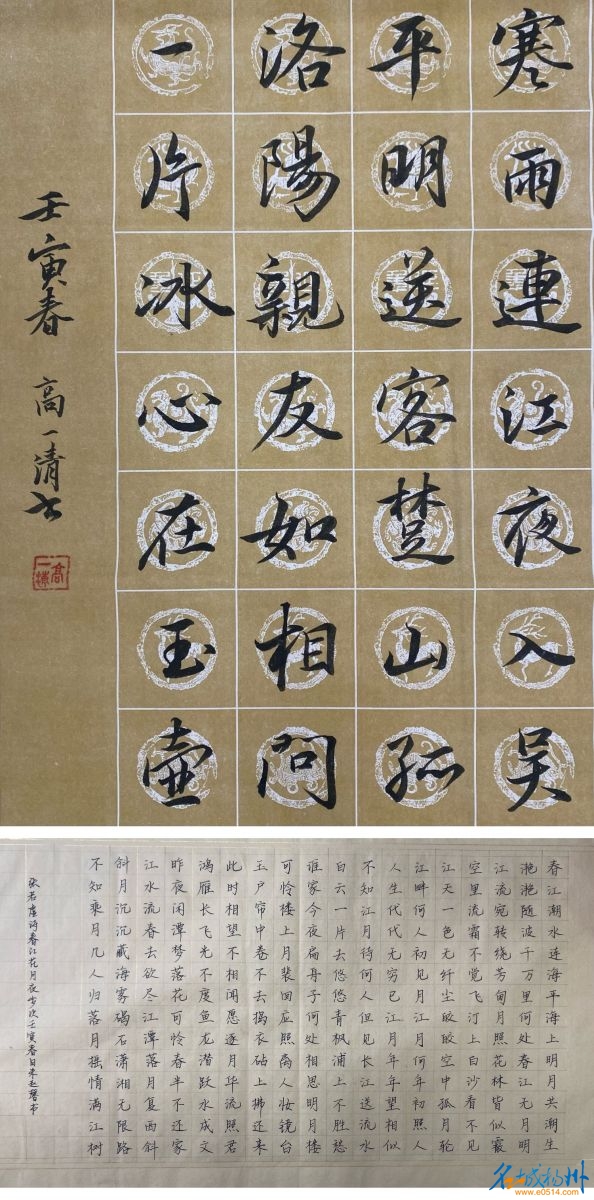 寒雨連江夜入吳
平明送客楚山孤
洛陽親友如相問
一片冰心在玉壺
壬寅春 高一清书
春江潮水连海平海上明月共潮生
滟滟随波千万里何处春江无月明
江流宛转绕芳甸月照花林皆似霰
空里流霜不觉飞汀上白沙看不见
江天一色无纤尘皎皎空中孤月轮
江畔何人初见月江月何年初照人
人生代代无穷已江月年年望相似
不知江月待何人但见长江送流水
白云一片去悠悠青枫浦上不胜愁
谁家今夜扁舟子何处相思明月楼
可怜楼上月裴回应照离人妆镜台
玉户帘中卷不去捣衣砧上拂还来
此时相望不相闻愿逐月华流照君
鸿雁长飞光不度鱼龙潜跃水成文
昨夜闲潭梦落花可怜春半不还家
江水流春去欲尽江潭落月复西斜
斜月沉沉藏海雾碣石潇湘无限路
不知乘月几人归落月摇情满江树
张若虚诗春江花月夜岁次壬寅春
名城扬州
www.e0514.com